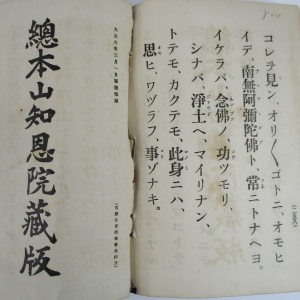 コレヲ見ン、オリ〳〵ゴトニ、オモヒ
イデ、南無阿彌陀佛ト、常ニトナヘヨ。
イケラバ、念佛ノ、功ツモリ、
シナバ、淨土ヘ、マイリナン、
トテモ、カクテモ、此身ニハ、
思ヒ、ワヅラフ、事ゾナキ。
總本山知恩院藏版